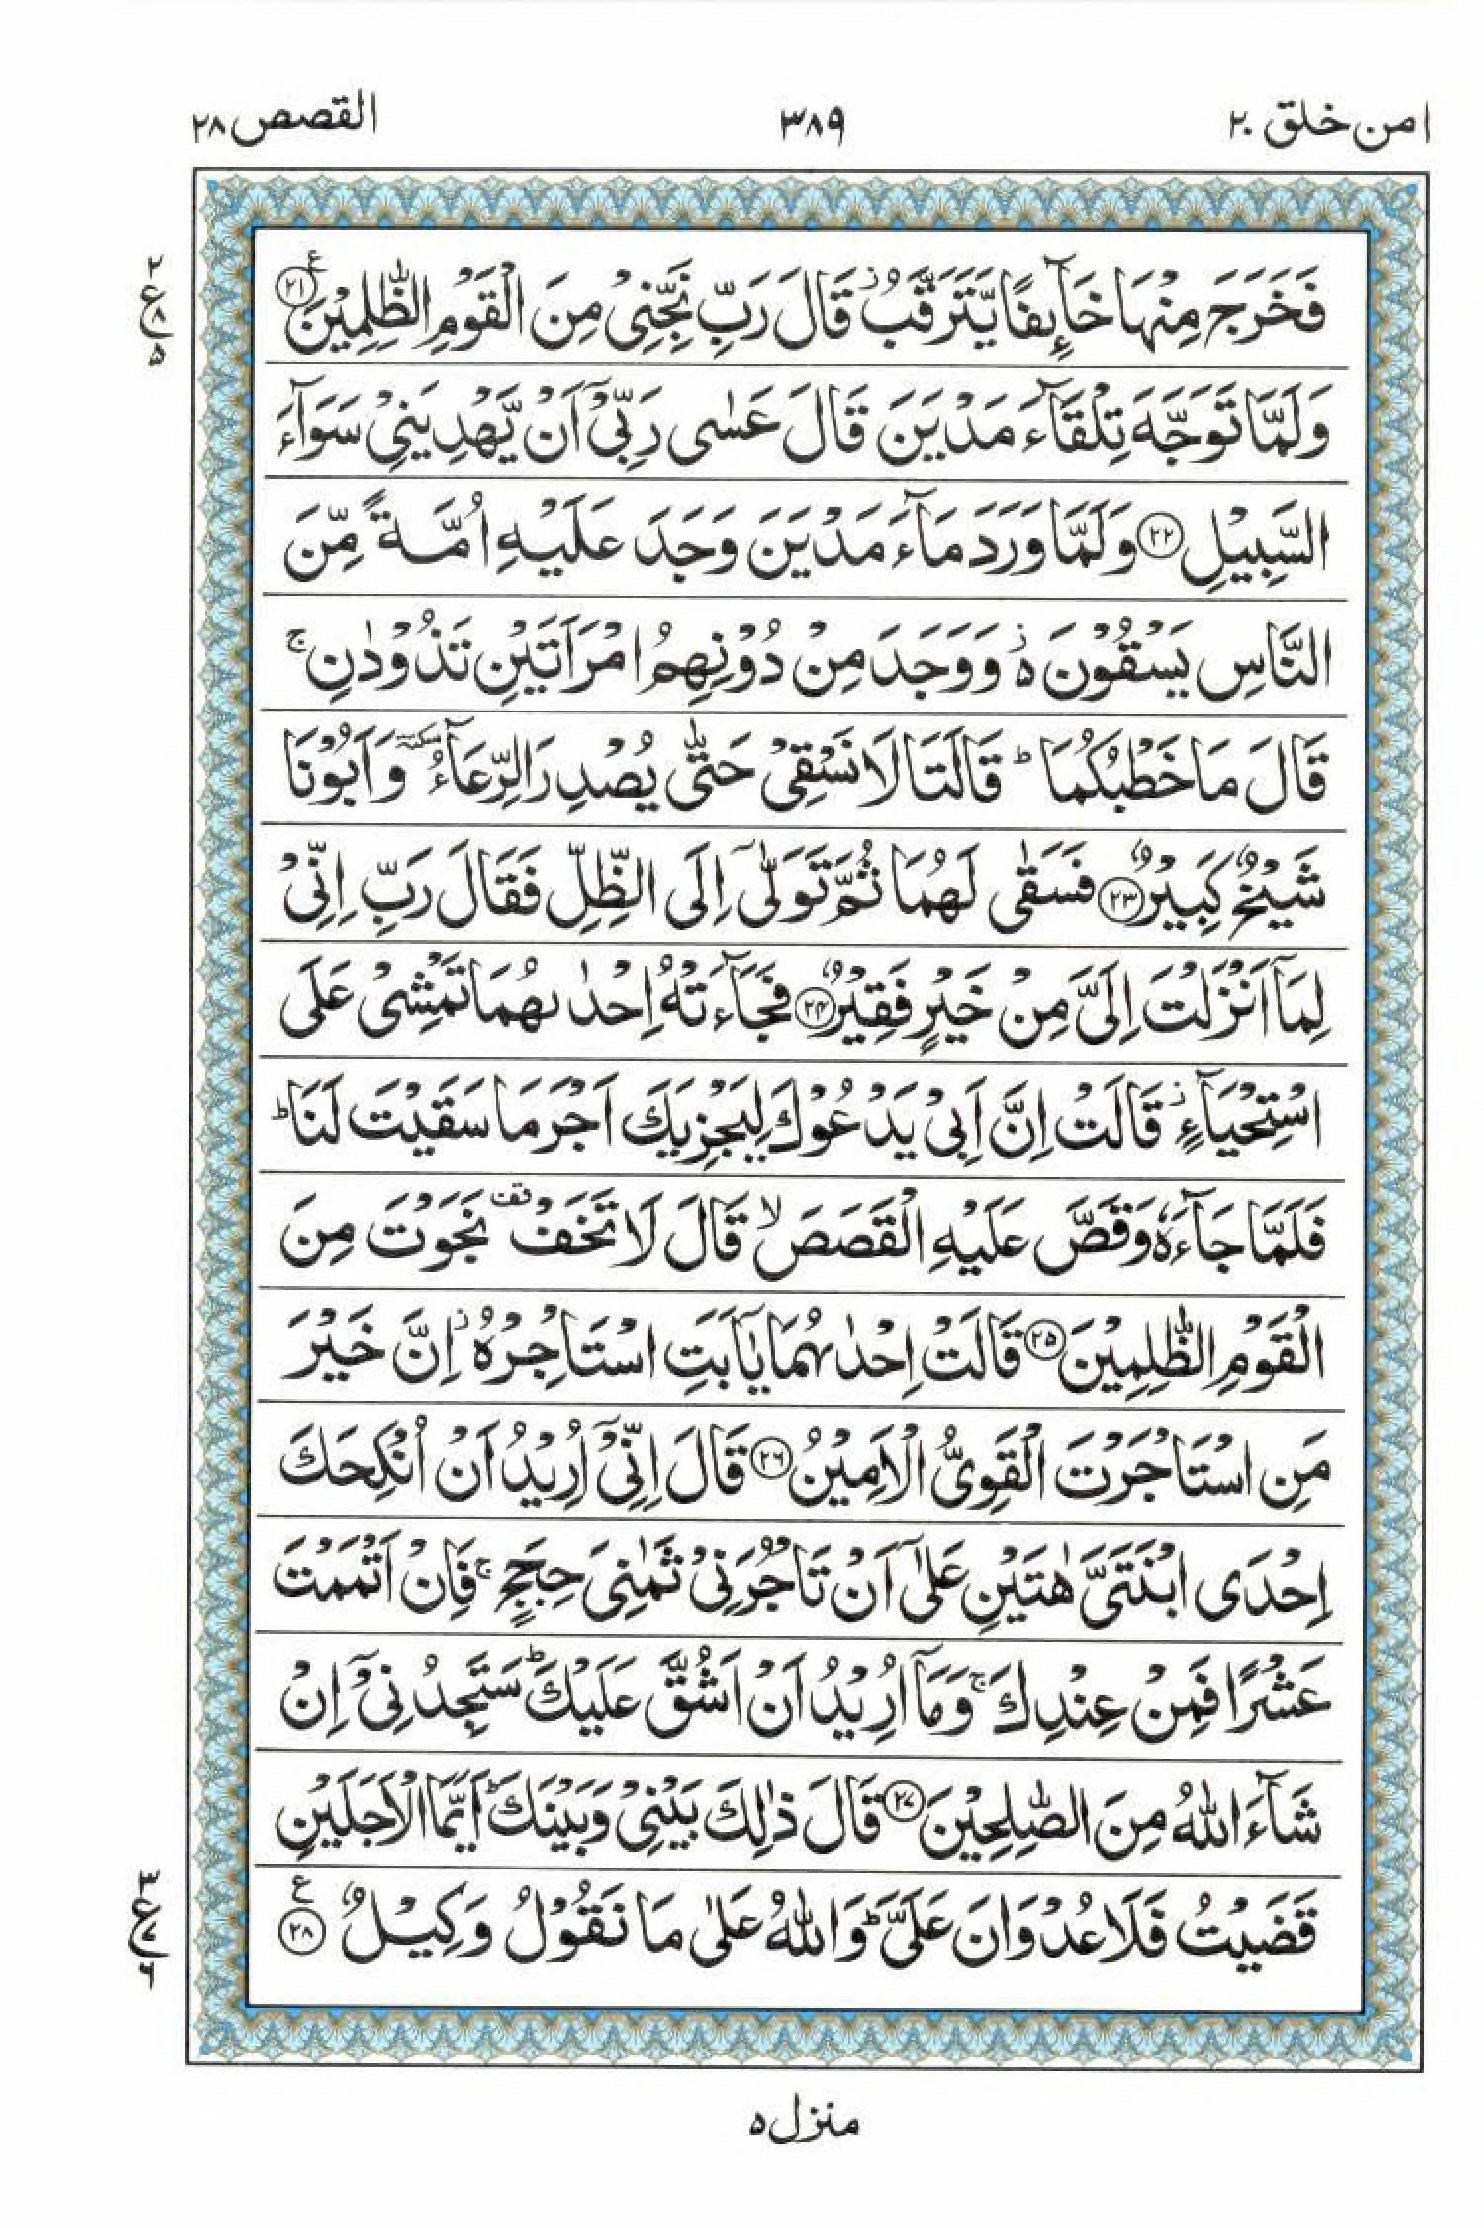 امن خلق ٢٠ ٣٨٩ القصص ٢٨
فَخَرَجَ مِنْهَا خَآىِٕفًا یَّتَرَقَّبُ ؗ قَالَ رَبِّ نَجِّنِیْ مِنَ الْقَوْمِ الظّٰلِمِیْنَ ع ۟﴿۲۱﴾
٢
ع ٨
٥
وَلَمَّا تَوَجَّهَ تِلْقَآءَ مَدْیَنَ قَالَ عَسٰی رَبِّیْۤ اَنْ یَّهْدِیَنِیْ سَوَآءَ
السَّبِیْلِ ﴿۲۲﴾ وَلَمَّا وَرَدَ مَآءَ مَدْیَنَ وَجَدَ عَلَیْهِ اُمَّةً مِّنَ
النَّاسِ یَسْقُوْنَ ە ؗ وَوَجَدَ مِنْ دُوْنِهِمُ امْرَاَتَیْنِ تَذُوْدٰنِ ۚ
قَالَ مَا خَطْبُكُمَا ؕ قَالَتَا لَا نَسْقِیْ حَتّٰی یُصْدِرَ الرِّعَآءُ سكتة وَاَبُوْنَا
شَیْخٌ كَبِیْرٌ ﴿۲۳﴾ فَسَقٰی لَهُمَا ثُمَّ تَوَلّٰۤی اِلَی الظِّلِّ فَقَالَ رَبِّ اِنِّیْ
لِمَاۤ اَنْزَلْتَ اِلَیَّ مِنْ خَیْرٍ فَقِیْرٌ ﴿۲۴﴾ فَجَآءَتْهُ اِحْدٰىهُمَا تَمْشِیْ عَلَی
اسْتِحْیَآءٍ ؗ قَالَتْ اِنَّ اَبِیْ یَدْعُوْكَ لِیَجْزِیَكَ اَجْرَ مَا سَقَیْتَ لَنَا ؕ
فَلَمَّا جَآءَهٗ وَقَصَّ عَلَیْهِ الْقَصَصَ ۙ قَالَ لَا تَخَفْ قف نَجَوْتَ مِنَ
الْقَوْمِ الظّٰلِمِیْنَ ﴿۲۵﴾ قَالَتْ اِحْدٰىهُمَا یٰۤاَبَتِ اسْتَاْجِرْهُ ؗ اِنَّ خَیْرَ
مَنِ اسْتَاْجَرْتَ الْقَوِیُّ الْاَمِیْنُ ﴿۲۶﴾ قَالَ اِنِّیْۤ اُرِیْدُ اَنْ اُنْكِحَكَ
اِحْدَی ابْنَتَیَّ هٰتَیْنِ عَلٰۤی اَنْ تَاْجُرَنِیْ ثَمٰنِیَ حِجَجٍ ۚ فَاِنْ اَتْمَمْتَ
عَشْرًا فَمِنْ عِنْدِكَ ۚ وَمَاۤ اُرِیْدُ اَنْ اَشُقَّ عَلَیْكَ ؕ سَتَجِدُنِیْۤ اِنْ
شَآءَ اللّٰهُ مِنَ الصّٰلِحِیْنَ ﴿۲۷﴾ قَالَ ذٰلِكَ بَیْنِیْ وَبَیْنَكَ ؕ اَیَّمَا الْاَجَلَیْنِ
قَضَیْتُ فَلَا عُدْوَانَ عَلَیَّ ؕ وَاللّٰهُ عَلٰی مَا نَقُوْلُ وَكِیْلٌ ع ﴿۲۸﴾
٣
ع ٧
٦
منزل ٥